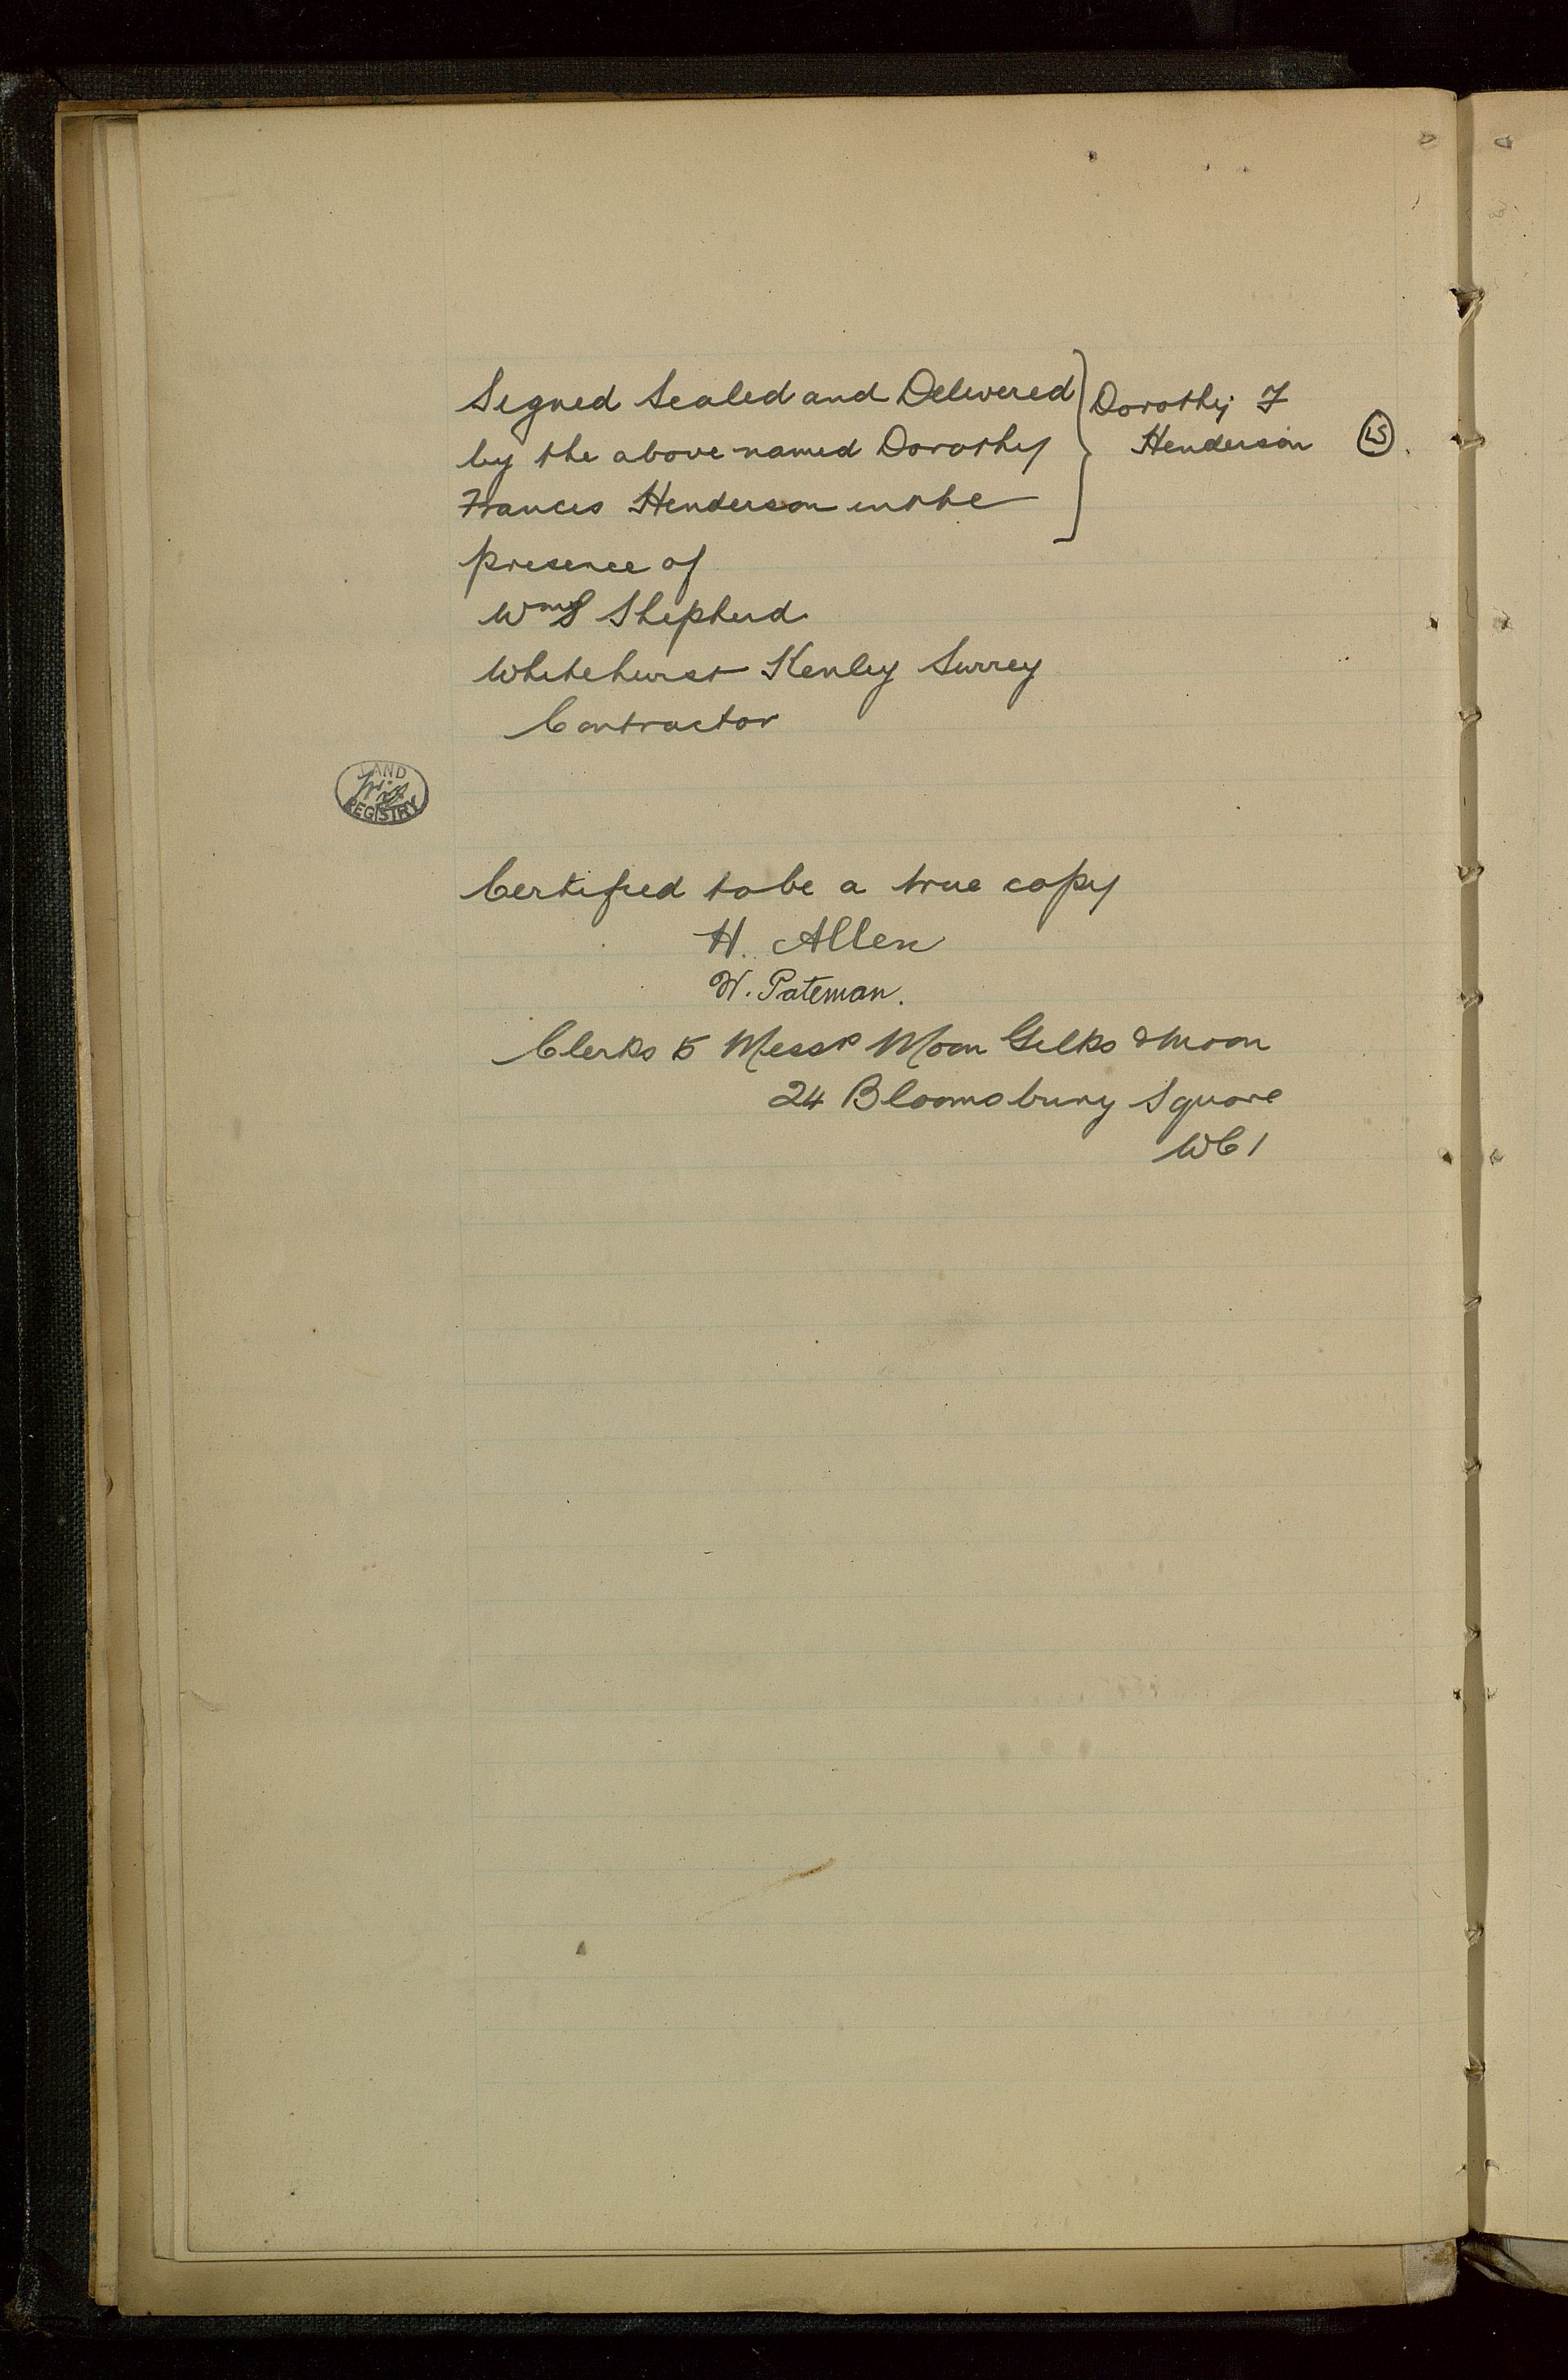 Signed Sealed and Delivered } Dorothy F
by the above named Dorothy Henderson LS
Frances Henderson in the
presence of
Wm S Shepherd
Whitehurst Kenley Surrey
Contractor
LAND
REGISTRY
Certified to be a true copy
H. Allen
W. Pateman.
Clerks to Messrs Moon Gilks & Moon
24 Bloomsbury Square
WC1